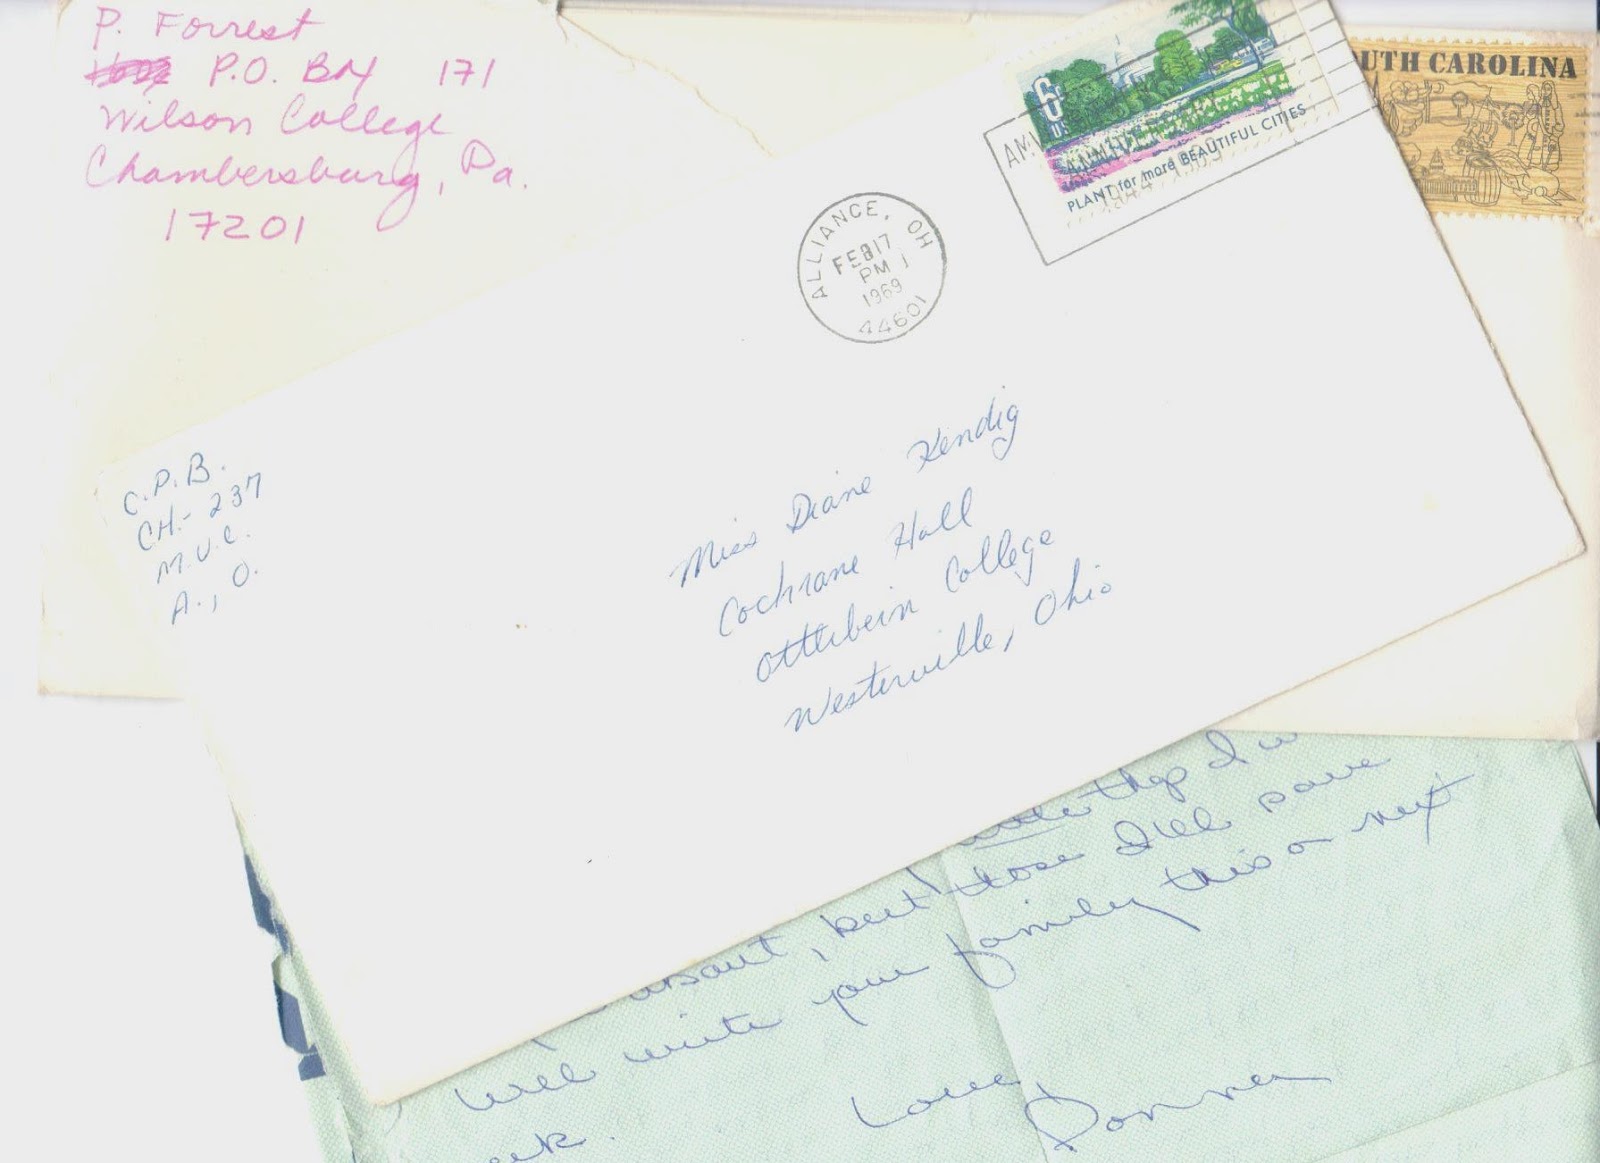 P. Forrest
P.O. Box 171
Wilson College
Chambersburg, Pa.
17201
6¢
US
PLANT for more BEAUTIFUL CITIES
UTH CAROLINA
ALLIANCE, OH
FEB 17
PM
1969
44601
C.P.B.
CH.- 237
M.U.C.
A., O.
Miss Diane Kendig
Cochrane Hall
Otterbein College
Westerville, Ohio
I
those I'll save
about, but
will write your family this or next
eek.
Love,
Donna